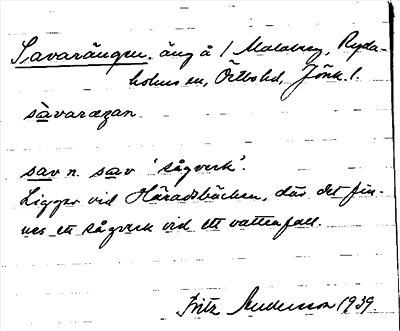 Savarängen. äng å 1 Malaberg, Ryda-
holms sn, Östbo hd, Jönk. l.
sàvaræŋan
sav n. sav 'sågverk'.
Ligger vid Häradsbäcken, där det fin-
nes ett sågverk vid ett vattenfall.
Fritz Andersson 1939.